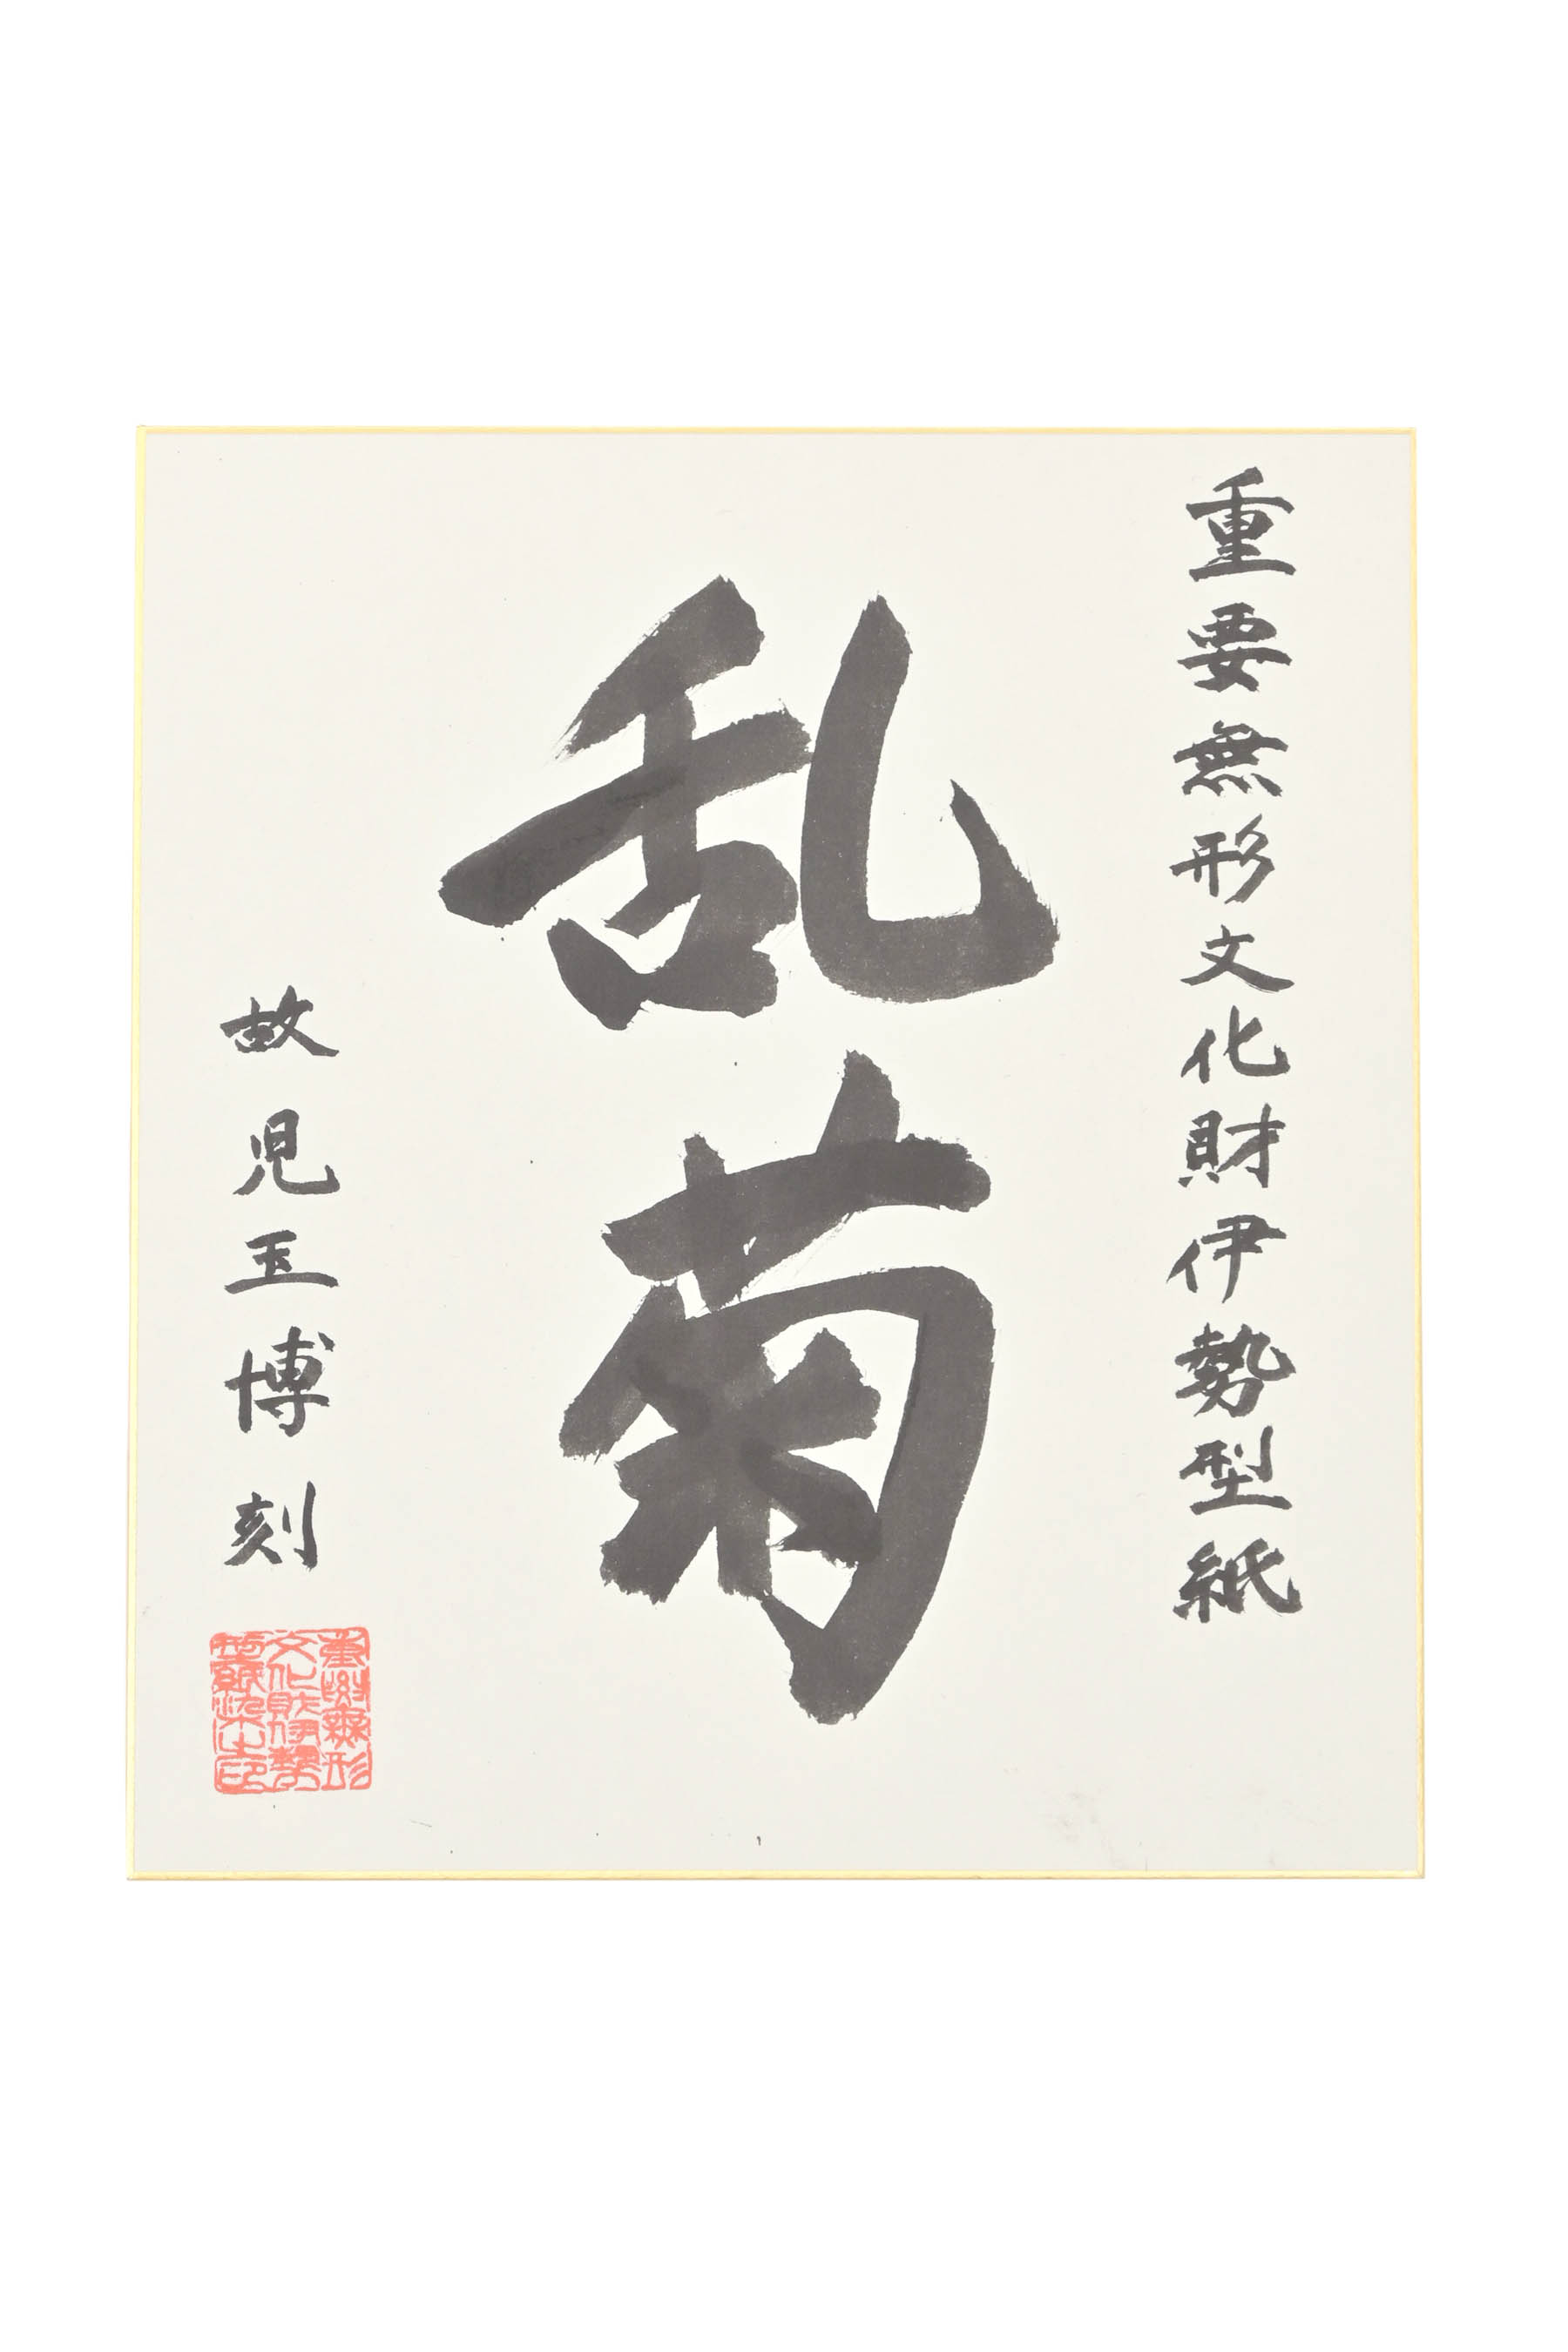 重要無形文化財伊勢型紙
乱菊
故児玉博刻